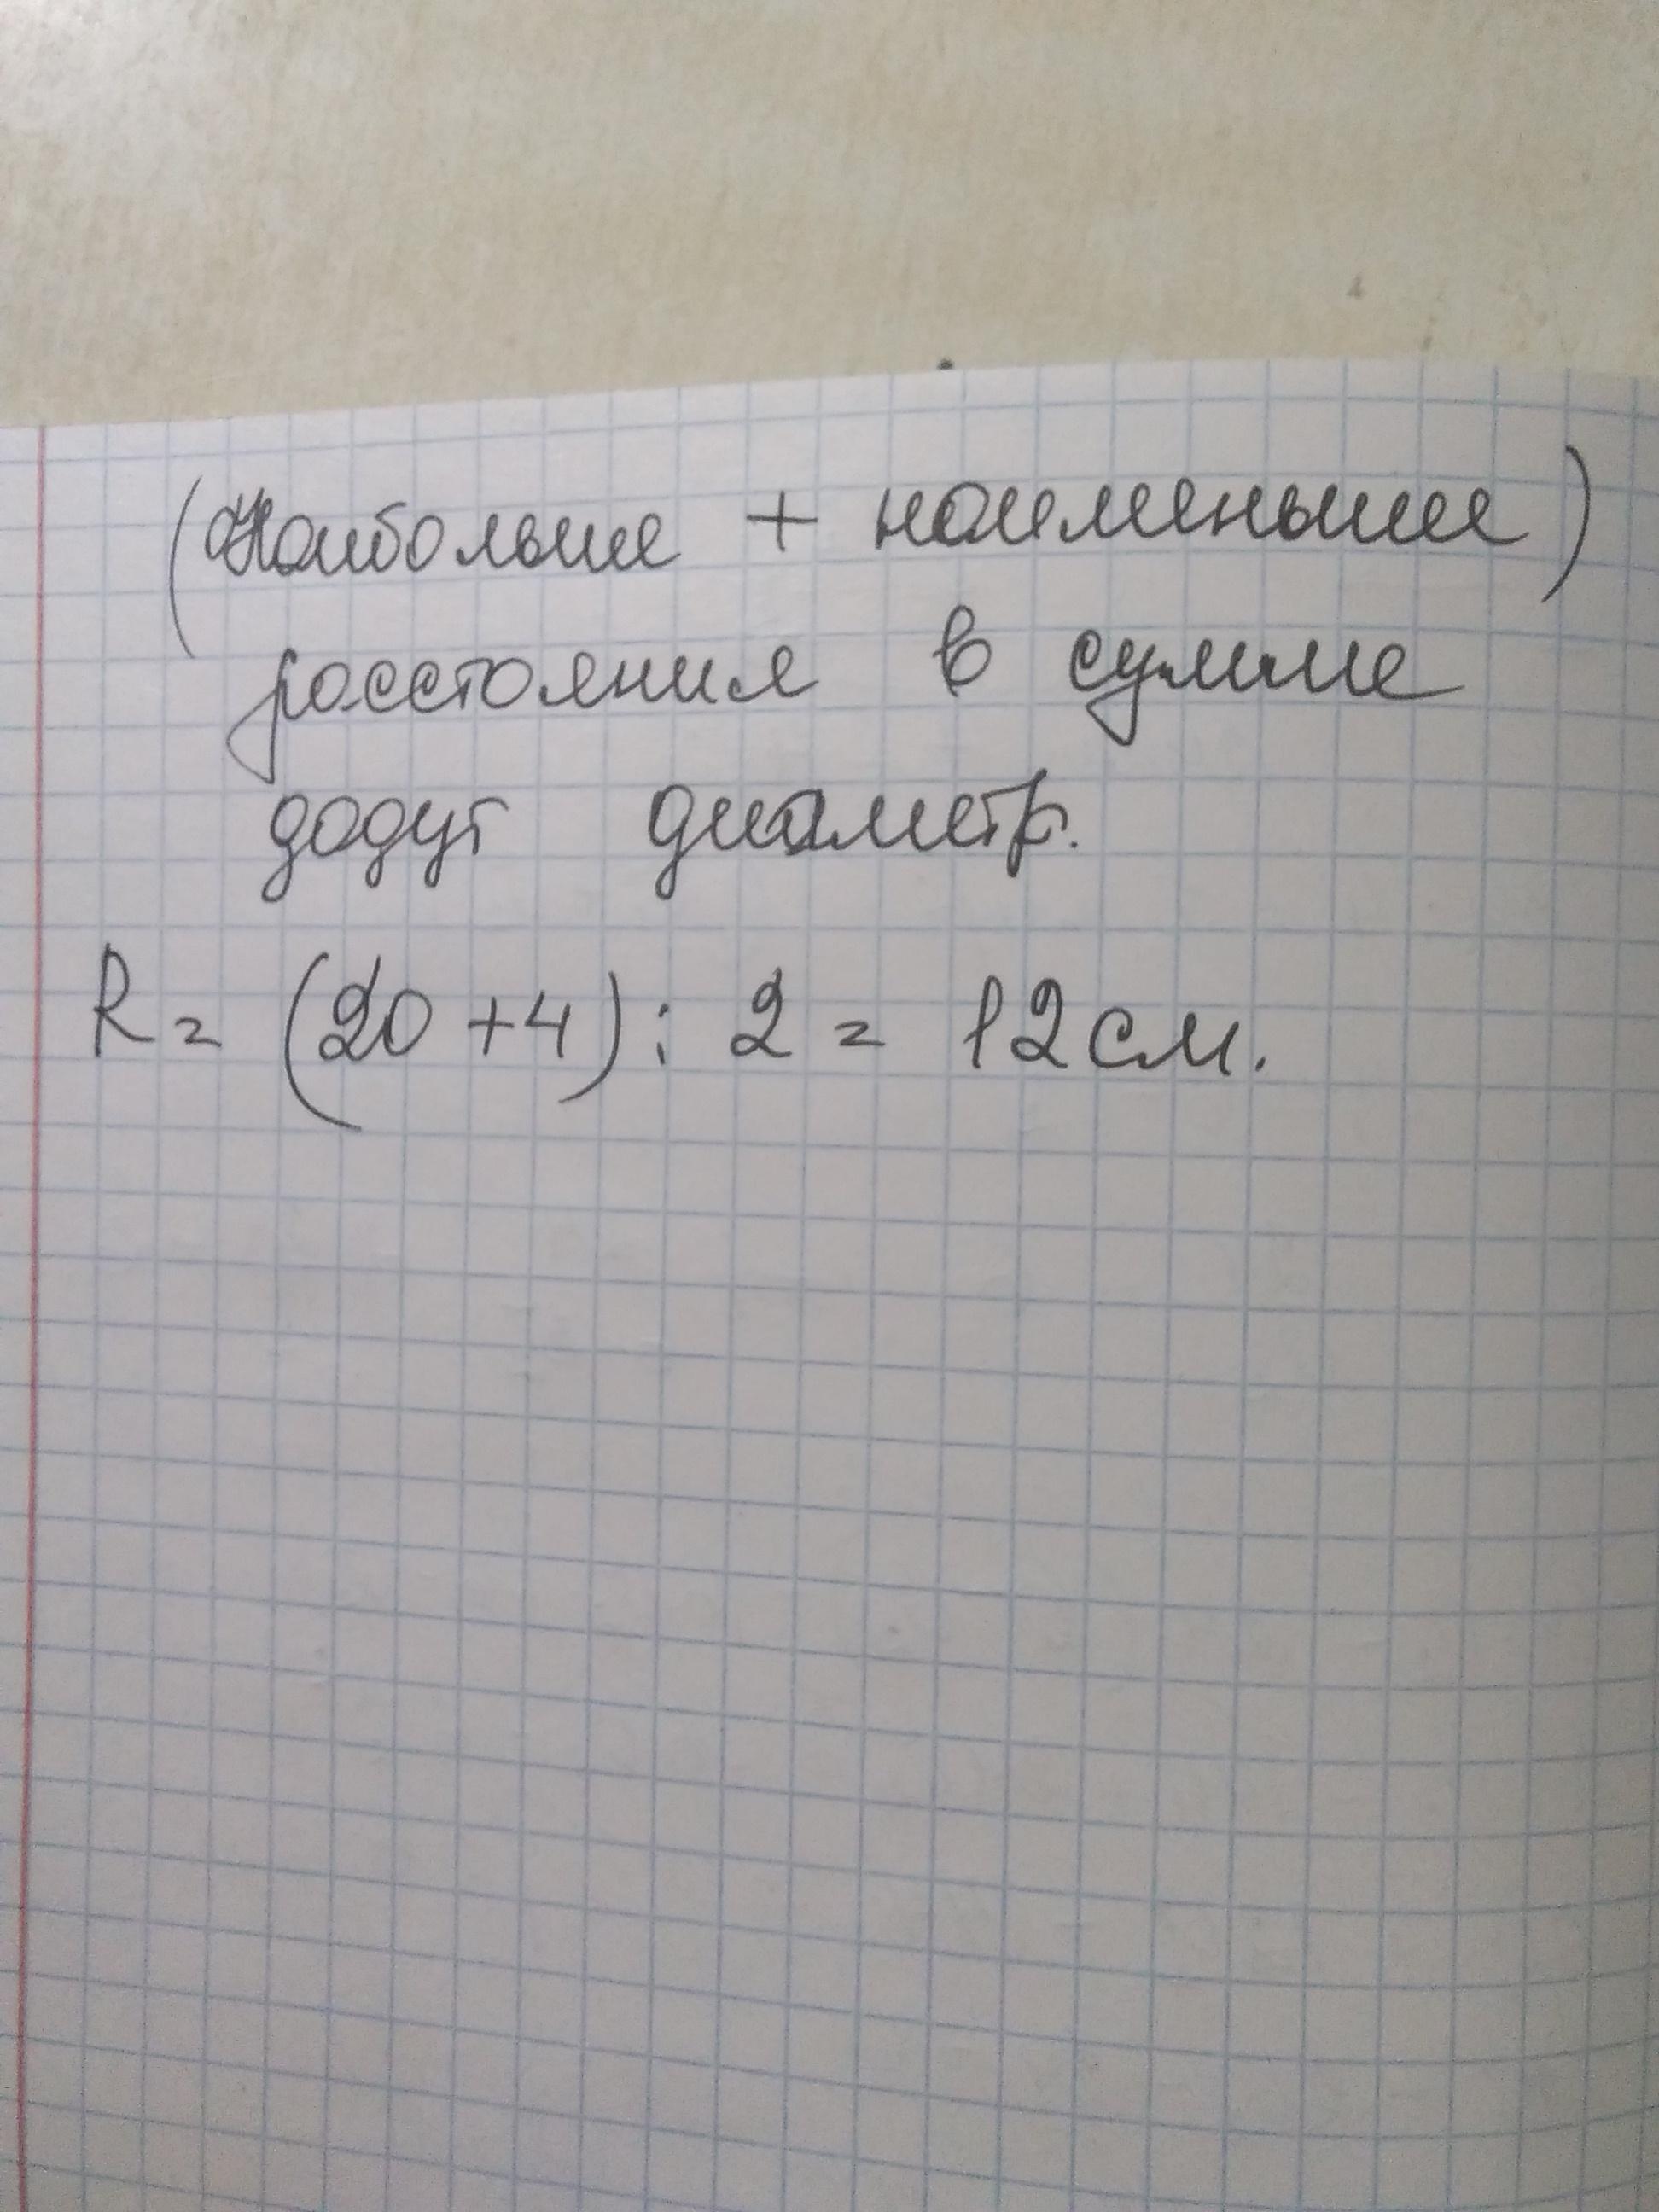 (Наибольшее + наименьшее)
расстояния в сумме
дадут диаметр.
R = (20 + 4) : 2 = 12 см.